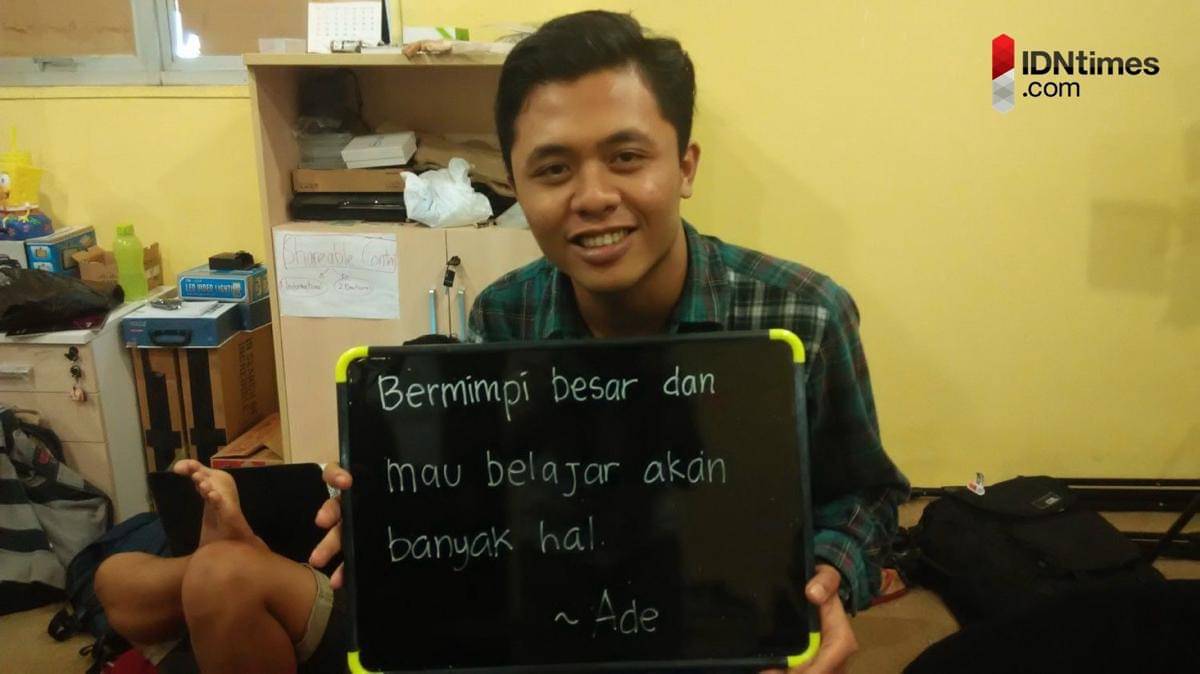 IDNtimes
.com
Shareable Conten
LED VIDEO LIGHT
Bermimpi besar dan
mau belajar akan
banyak hal.
~ Ade